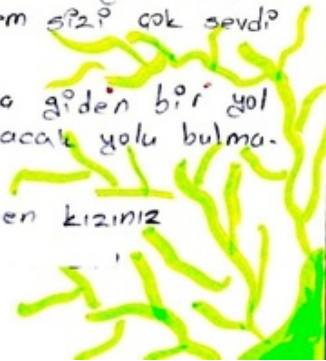 em sizi çok sevdi
a giden bir yol
acak yolu bulma-
en kızınız